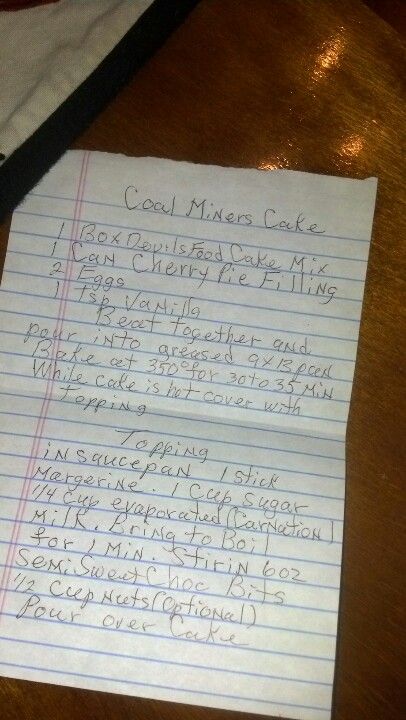 Coal Miners Cake
1 Box Devils Food Cake Mix
1 Can Cherry Pie Filling
2 Eggs
1 Tsp Vanilla
Beat together and
pour into greased 9x13 pan
Bake at 350° for 30 to 35 Min
While cake is hot cover with
topping
Topping
in saucepan 1 stick
Margerine. 1 Cup Sugar
1/4 cup evaporated (Carnation)
Milk. Bring to Boil
for 1 Min. Stir in 6 oz
Semi Sweet Choc Bits
1/2 Cup Nuts (Optional)
Pour over Cake